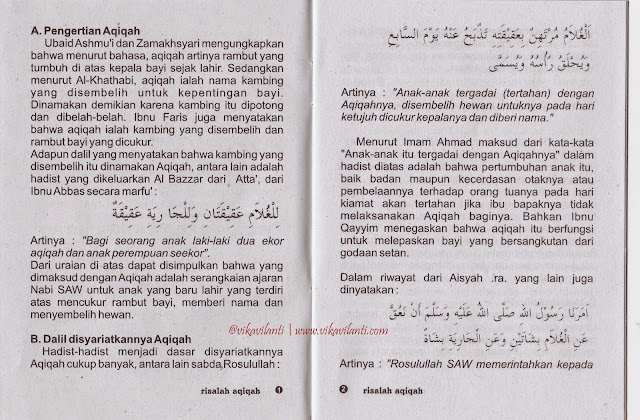 A. Pengertian Aqiqah
Ubaid Ashmu'i dan Zamakhsyari mengungkapkan
bahwa menurut bahasa, aqiqah artinya rambut yang
tumbuh di atas kepala bayi sejak lahir. Sedangkan
menurut Al-Khathabi, aqiqah ialah nama kambing
yang disembelih untuk kepentingan bayi.
Dinamakan demikian karena kambing itu dipotong
dan dibelah-belah. Ibnu Faris juga menyatakan
bahwa aqiqah ialah kambing yang disembelih dan
rambut bayi yang dicukur.
Adapun dalil yang menyatakan bahwa kambing yang
disembelih itu dinamakan Aqiqah, antara lain adalah
hadist yang dikeluarkan Al Bazzar dari Atta', dari
Ibnu Abbas secara marfu' :
لِلْغُلَامِ عَقِيْقَتَانِ وَلِلْجَا رِيَةِ عَقِيْقَةٌ
Artinya : "Bagi seorang anak laki-laki dua ekor
aqiqah dan anak perempuan seekor".
Dari uraian di atas dapat disimpulkan bahwa yang
dimaksud dengan Aqiqah adalah serangkaian ajaran
Nabi SAW untuk anak yang baru lahir yang terdiri
atas mencukur rambut bayi, memberi nama dan
menyembelih hewan.
B. Dalil disyariatkannya Aqiqah
Hadist-hadist menjadi dasar disyariatkannya
Aqiqah cukup banyak, antara lain sabda Rosulullah :
risalah aqiqah 1
اَلْغُلَامُ مُرْتَهِنٌ بِعَقِيْقَتِهِ تُذْبَحُ عَنْهُ يَوْمَ السَّابِعِ
وَيُحْلَقُ رَأْسُهُ وَيُسَمَّى
Artinya : "Anak-anak tergadai (tertahan) dengan
Aqiqahnya, disembelih hewan untuknya pada hari
ketujuh dicukur kepalanya dan diberi nama."
Menurut Imam Ahmad maksud dari kata-kata
"Anak-anak itu tergadai dengan Aqiqahnya" dalam
hadist diatas adalah bahwa pertumbuhan anak itu,
baik badan maupun kecerdasan otaknya atau
pembelaannya terhadap orang tuanya pada hari
kiamat akan tertahan jika ibu bapaknya tidak
melaksanakan Aqiqah baginya. Bahkan Ibnu
Qayyim menegaskan bahwa aqiqah itu berfungsi
untuk melepaskan bayi yang bersangkutan dari
godaan setan.
Dalam riwayat dari Aisyah .ra. yang lain juga
dinyatakan :
اَمَرَنَا رَسُوْلُ اللهِ صَلَّى اللهُ عَلَيْهِ وَسَلَّمَ اَنْ نَعُقَّ
عَنِ الْغُلَامِ بِشَاتَيْنِ وَعَنِ الْجَارِيَةِ بِشَاةٍ
Artinya : "Rosulullah SAW memerintahkan kepada
2 risalah aqiqah
@vikavilanti | www.vikavilanti.com